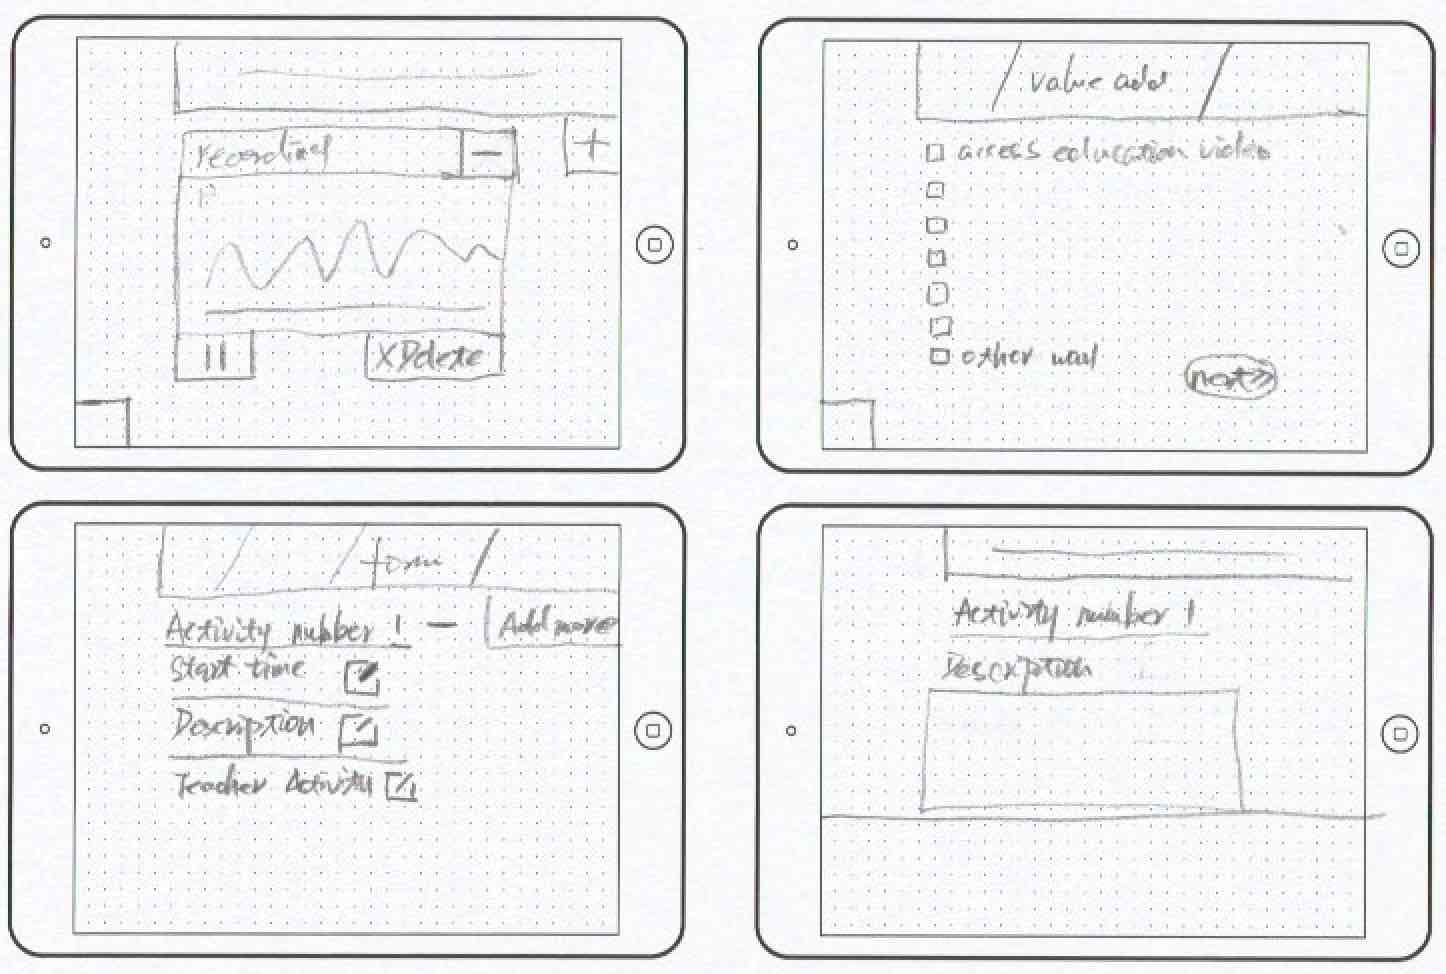 recording
—
+
X Delete
value add
access education video
other way
next >>
Activity number 1 —
Add more
Start time
Description
Teacher Activity
Activity number 1
Description